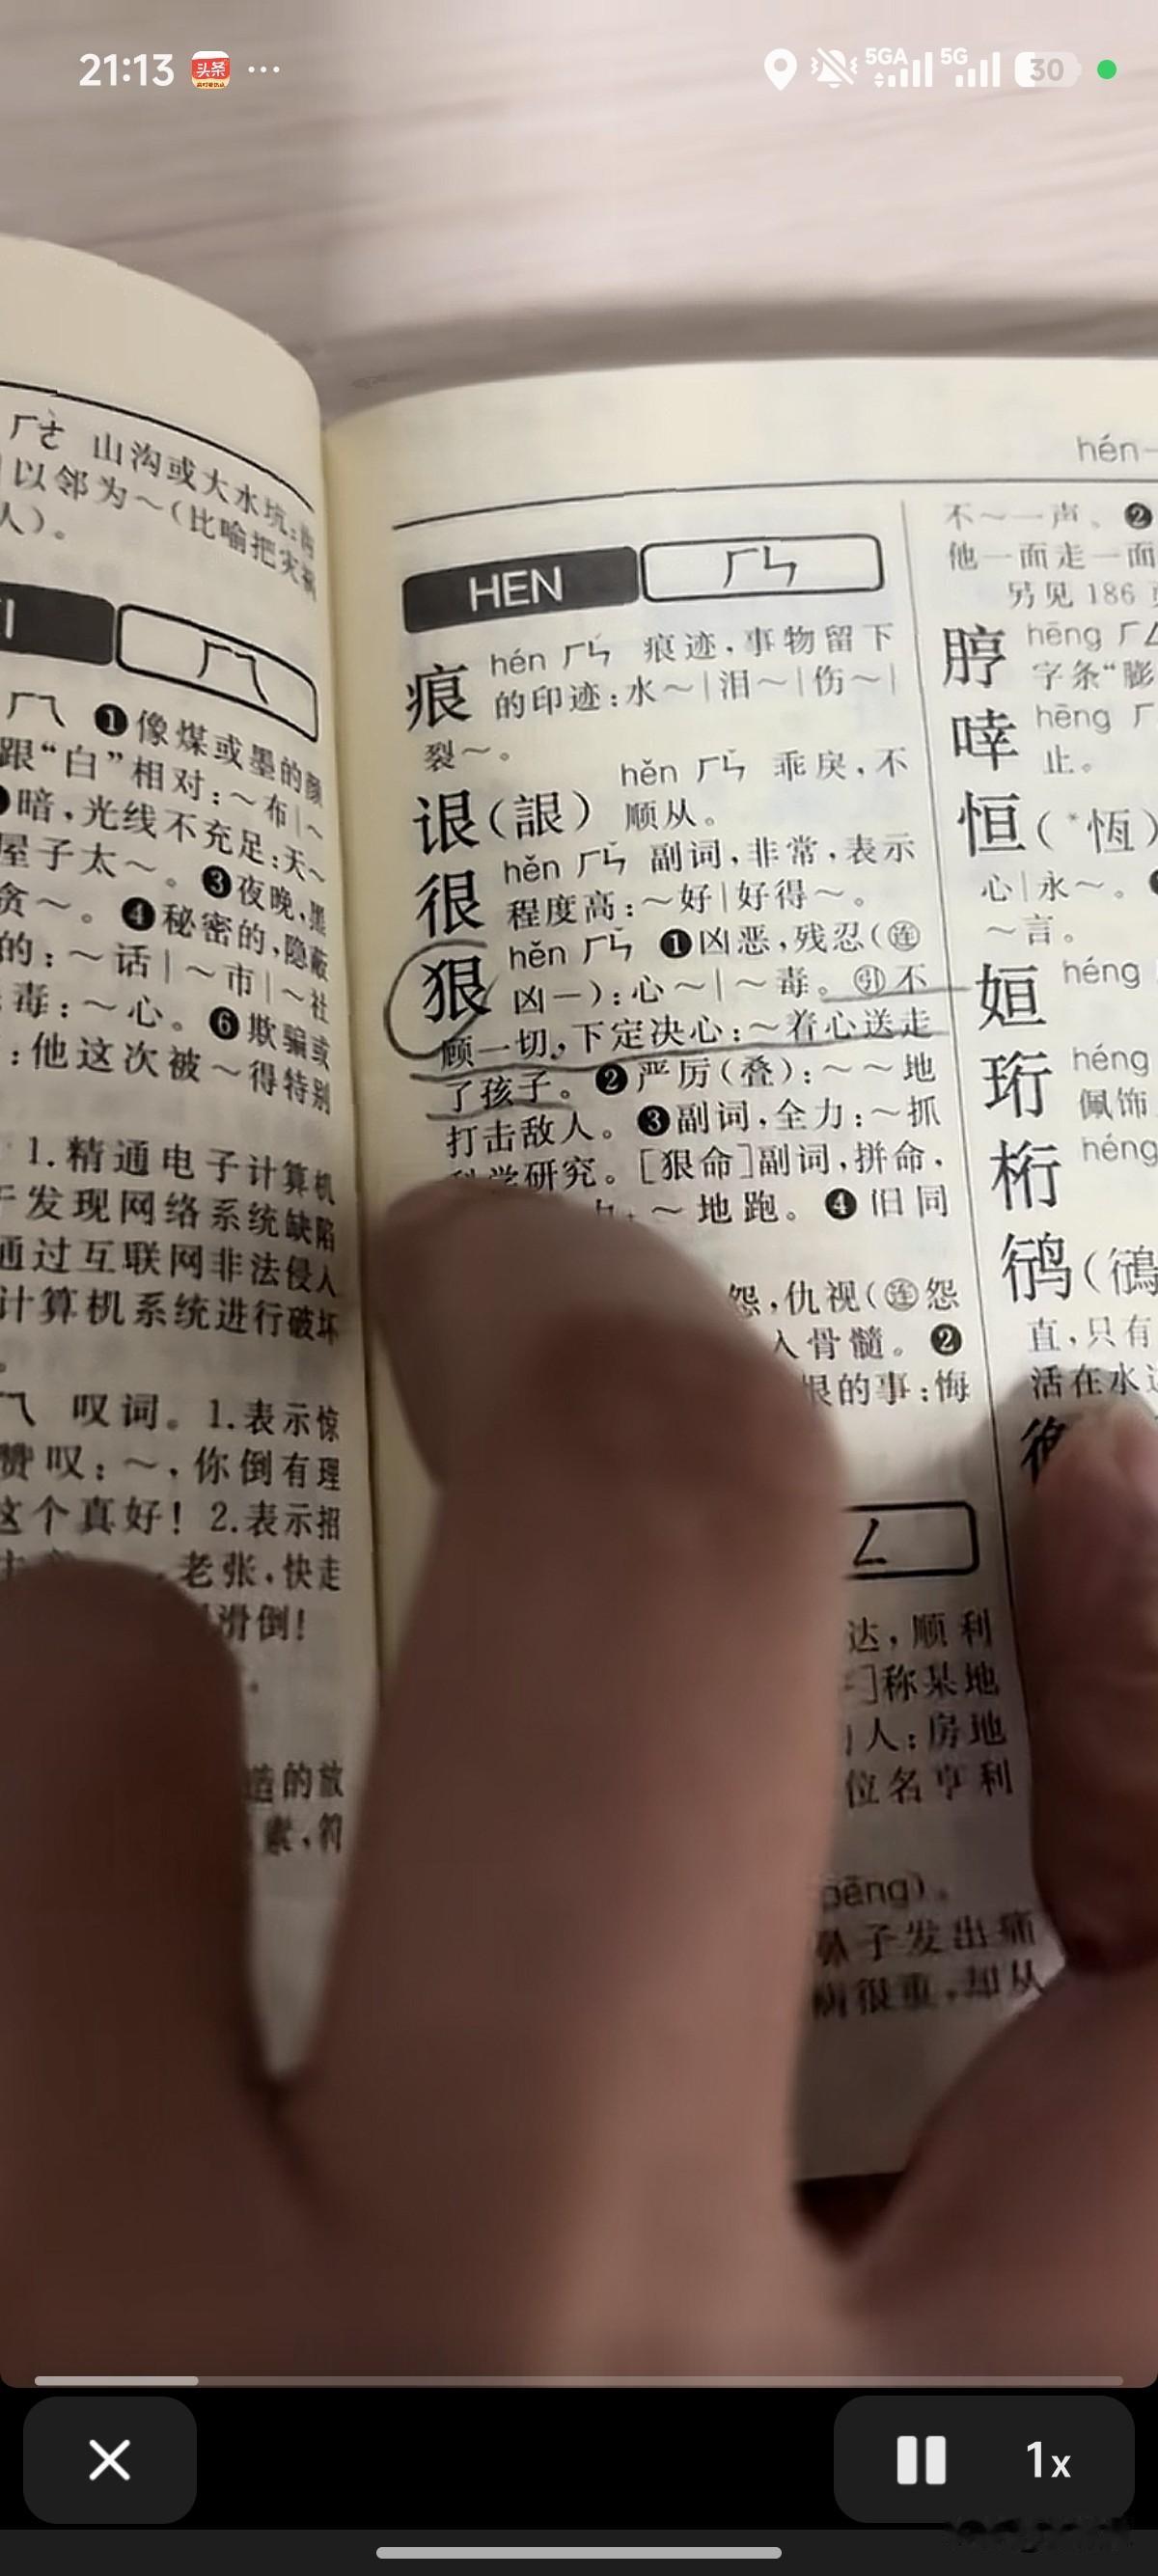 21:13 头条 ... 5GA 5G 30
ㄏㄜˋ 山沟或大水坑:
以邻为~(比喻把灾祸
人)。
ㄏㄟ
ㄏㄟ ❶像煤或墨的颜
跟“白”相对:~布|~
暗,光线不充足:天~
屋子太~。❸夜晚,黑
贪~。❹秘密的,隐蔽
的:~话|~市|~社
毒:~心。❻欺骗或
:他这次被~得特别
1.精通电子计算机
于发现网络系统缺陷
通过互联网非法侵入
计算机系统进行破坏
。
ㄟ 叹词。1.表示惊
赞叹:~,你倒有理
这个真好!2.表示招
老张,快走
滑倒!
造的放
素,符
hén-
HEN ㄏㄣ
痕 hén ㄏㄣˊ 痕迹,事物留下
的印迹:水~|泪~|伤~|
裂~。
诎(詪) hěn ㄏㄣˇ 乖戾,不
顺从。
很 hěn ㄏㄣˇ 副词,非常,表示
程度高:~好|好得~。
狠 hěn ㄏㄣˇ ❶凶恶,残忍(连
凶—):心~|~毒。引不
顾一切,下定决心:~着心送走
了孩子。❷严厉(叠):~~地
打击敌人。❸副词,全力:~抓
科学研究。[狠命]副词,拼命,
~地跑。❹旧同
怨,仇视(连怨
人骨髓。❷
恨的事:悔
ㄥ
达,顺利
]称某地
人:房地
位名亨利
pēng)。
鼻子发出痛
病很重,却从
不~一声。❷
他一面走一面
另见186
脝 hēng ㄏㄥ
字条“膨
啈 hēng ㄏ
止。
恒(*恆)
心|永~。
~言。
姮 héng
珩 héng
佩饰
桁 héng
鸻(鴴
直,只有
活在水边
1x